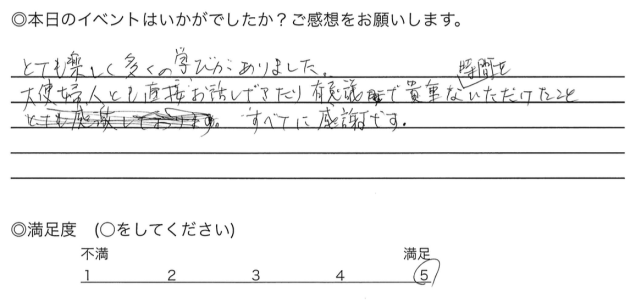 ◎本日のイベントはいかがでしたか？ご感想をお願いします。
とても楽しく多くの学びがありました。
時間を
大使婦人とも直接お話しできたり有意義で貴重ないただけたこと
とても感謝しております。すべてに感謝です。
◎満足度　(○をしてください)
不満　満足
1 2 3 4 5